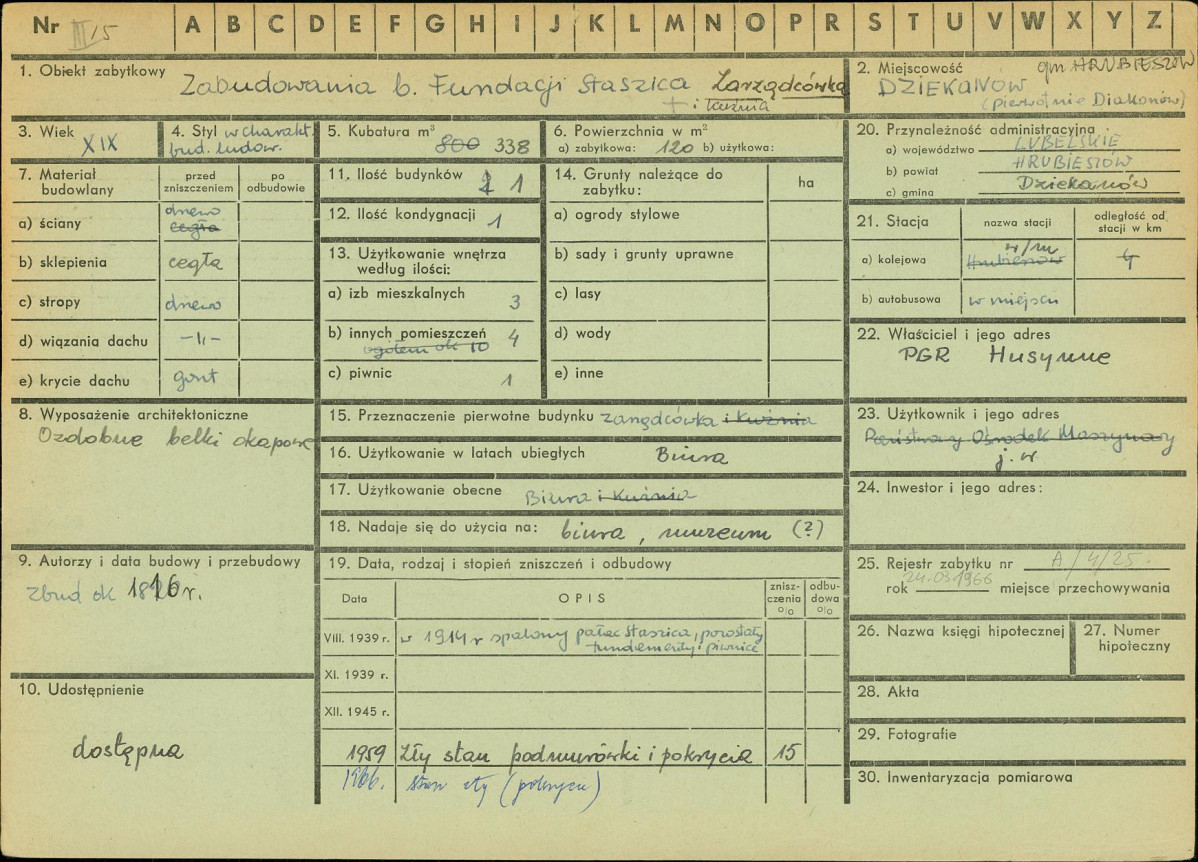 Nr III/15 A B C D E F G H I J K L M N O P R S T U V W X Y Z
1. Obiekt zabytkowy Zabudowania b. Fundacji Staszica Zarządcówka
+ i kuźnia
2. Miejscowość gm HRUBIESZÓW
DZIEKANÓW
(pierwotnie Diakonów)
3. Wiek
XIX
4. Styl w charakt.
bud. ludow.
5. Kubatura m³
800 338
6. Powierzchnia w m²
a) zabytkowa: 120 b) użytkowa:
7. Materiał budowlany
przed zniszczeniem
po odbudowie
a) ściany drewno cegła
b) sklepienia cegła
c) stropy drewno
d) wiązania dachu –"–
e) krycie dachu gont
8. Wyposażenie architektoniczne
Ozdobne belki okapowe
9. Autorzy i data budowy i przebudowy
zbud ok 1816 r.
10. Udostępnienie
dostępna
11. Ilość budynków 2 1
12. Ilość kondygnacji 1
13. Użytkowanie wnętrza
według ilości:
a) izb mieszkalnych 3
b) innych pomieszczeń 4
ogółem ok 10
c) piwnic 1
14. Grunty należące do
zabytku:
ha
a) ogrody stylowe
b) sady i grunty uprawne
c) lasy
d) wody
e) inne
15. Przeznaczenie pierwotne budynku zarządcówka i kuźnia
16. Użytkowanie w latach ubiegłych Biura
17. Użytkowanie obecne Biura i kuźnia
18. Nadaje się do użycia na: biura, muzeum (?)
19. Data, rodzaj i stopień zniszczeń i odbudowy
Data OPIS znisz-
czenia
% odbu-
dowa
%
VIII. 1939 r. w 1914 r spalony pałac Staszica, pozostały
fundamenty i piwnice
XI. 1939 r.
XII. 1945 r.
1959 Zły stan podmurówki i pokrycia 15
1966. stan zły (pokrycia)
20. Przynależność administracyjna
a) województwo LUBELSKIE
b) powiat HRUBIESZÓW
c) gmina Dziekanów
21. Stacja
nazwa stacji
odległość od
stacji w km
a) kolejowa w/m Hrubieszów 4
b) autobusowa w miejscu
22. Właściciel i jego adres
PGR Husynne
23. Użytkownik i jego adres
Państwowy Ośrodek Maszynowy
j.w.
24. Inwestor i jego adres:
25. Rejestr zabytku nr A/4/25.
rok 24.03.1966 miejsce przechowywania
26. Nazwa księgi hipotecznej
27. Numer
hipoteczny
28. Akta
29. Fotografie
30. Inwentaryzacja pomiarowa